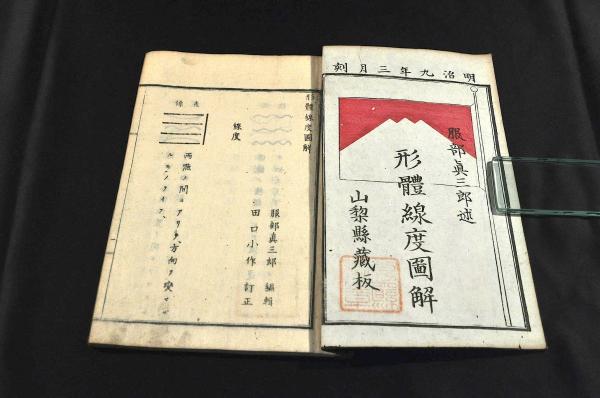 明治九年三月刻
服部眞三郎述
形體線度圖解
山棃縣藏板
形體線度圖解
服部眞三郎 編輯
田口小作 訂正
線度
直線
両端ノ間ニアリテ方向ヲ變セ